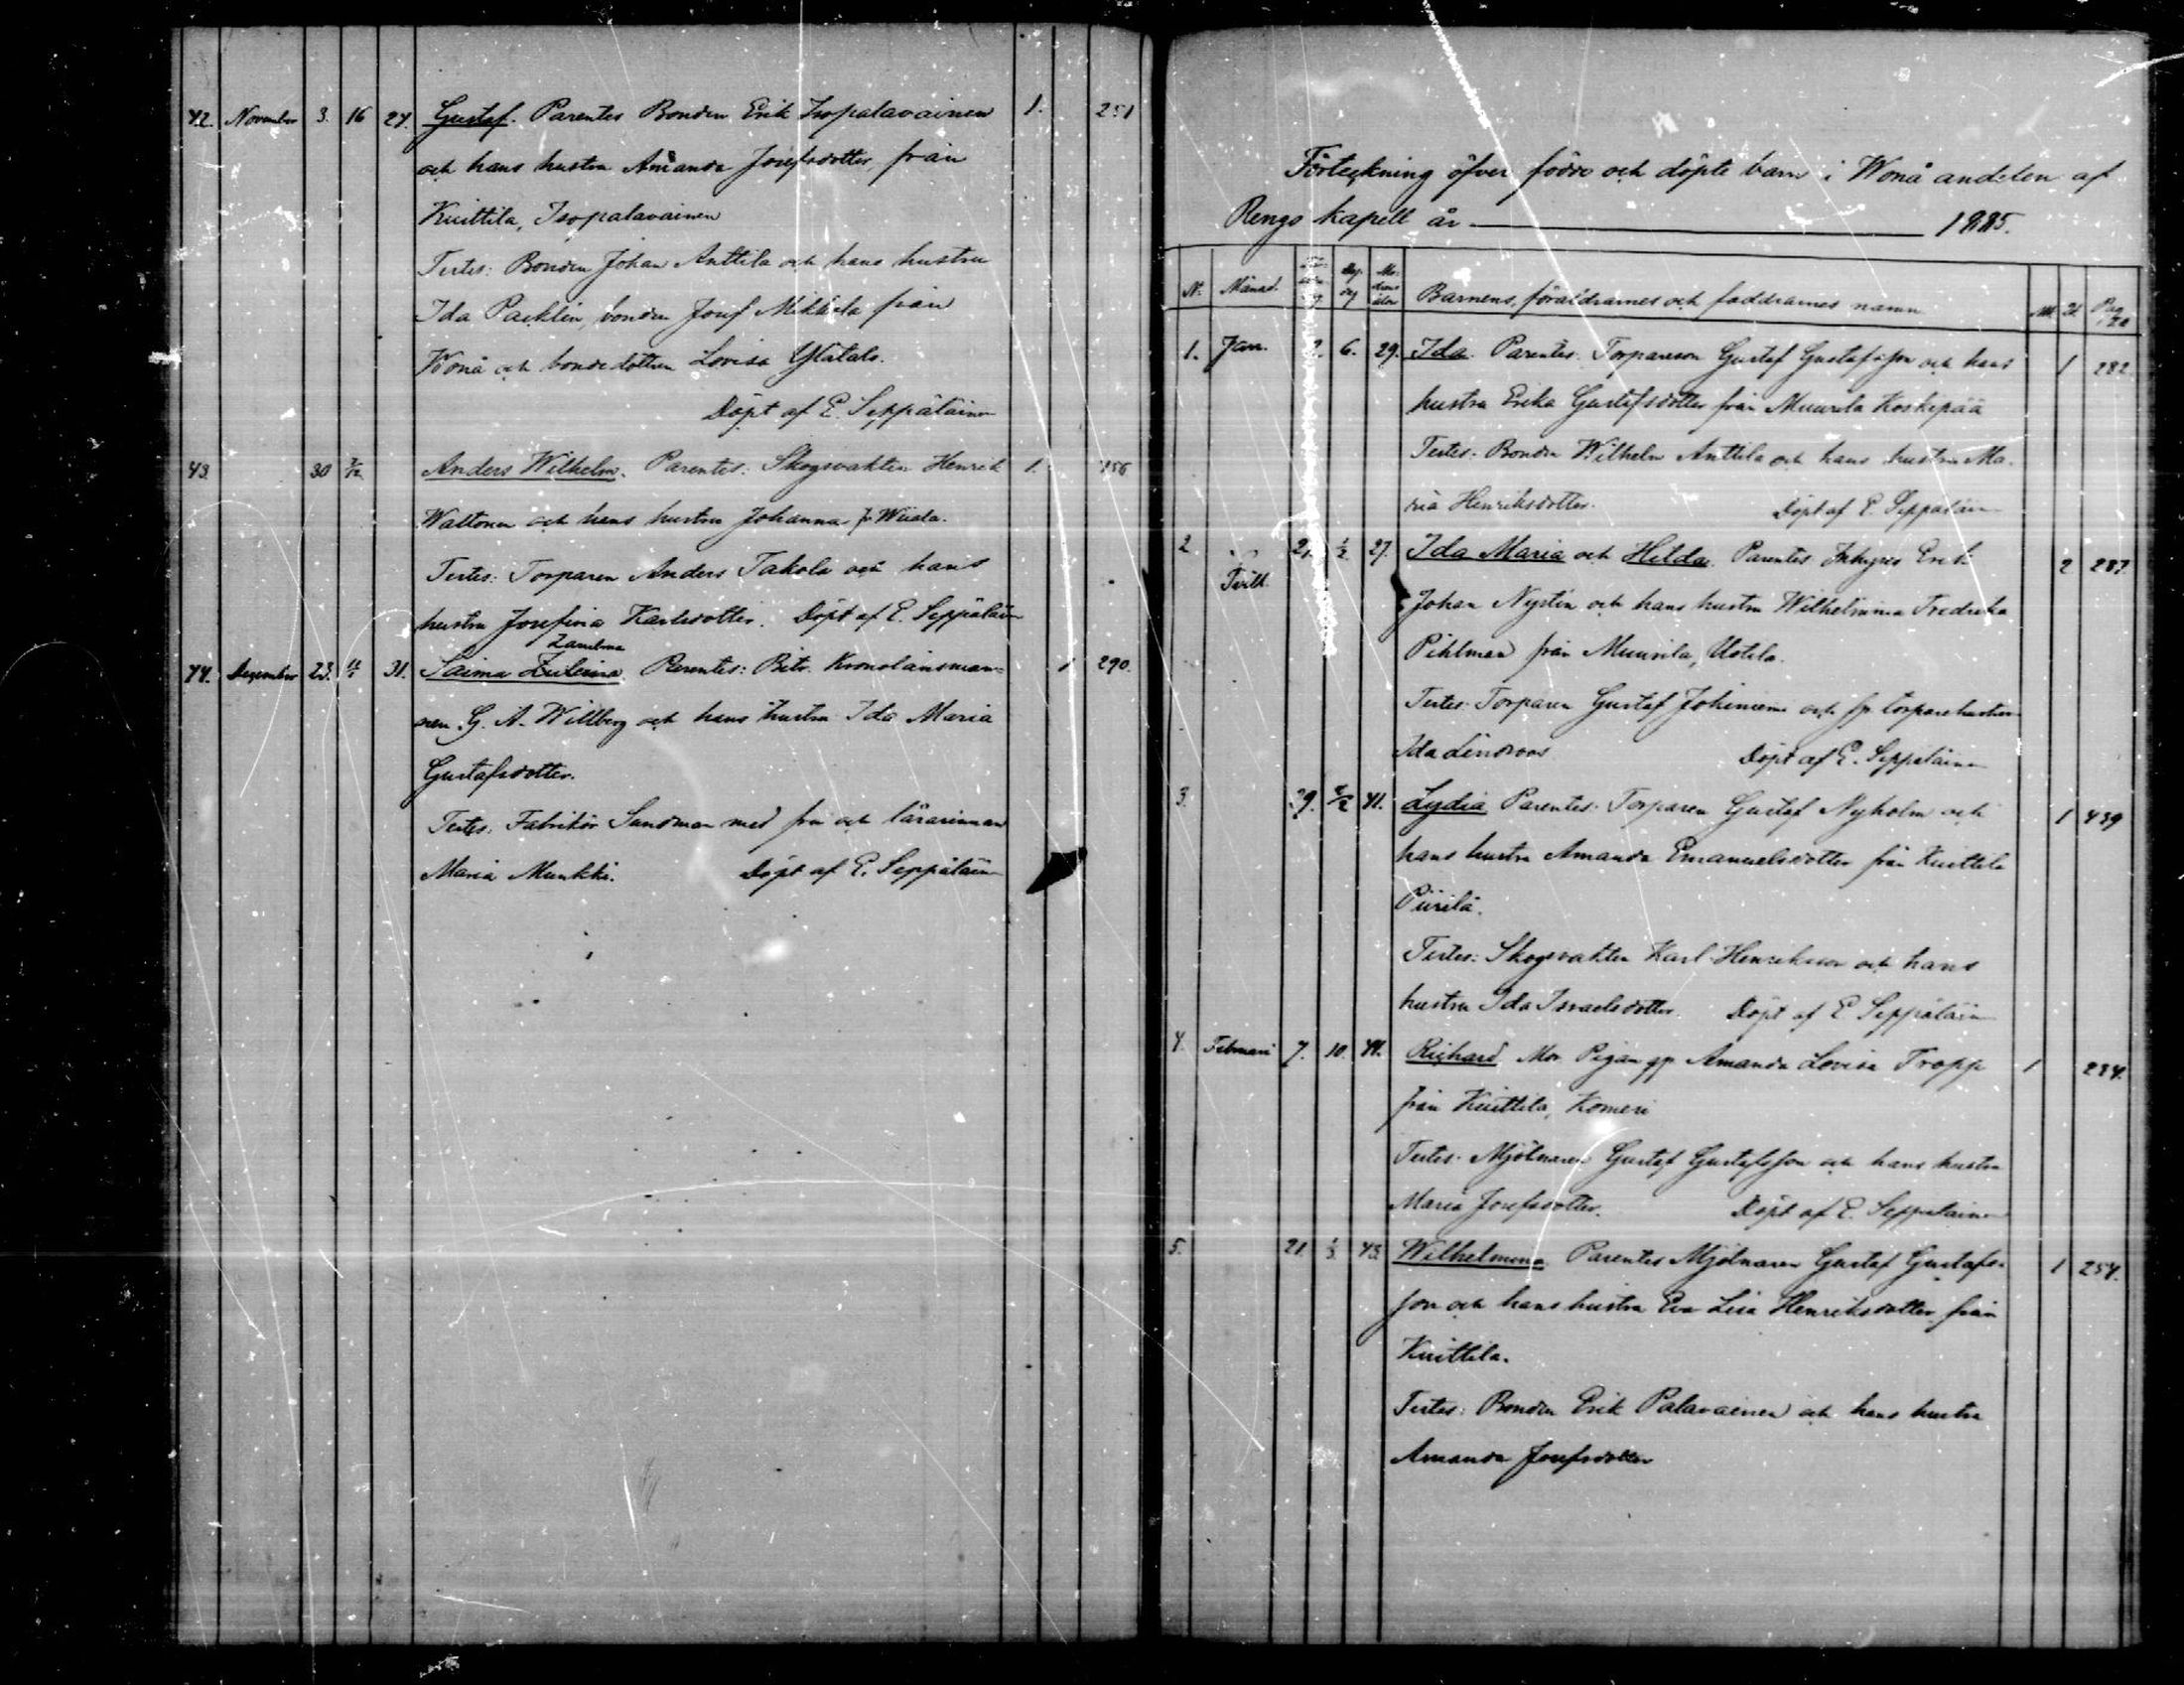 42. November 3. 16 24. Gustaf. Parentes Bonden Erik Isopalavainen 1. 251
och hans hustru Amanda Josefsdotter från
Kuittila, Isopalavainen
Testes: Bonden Johan Anttila och hans hustru
Ida Packlin, bonden Josef Mikkola från
Wonå och bondedottren Lovisa Ylätalo.
Döpt af E. Seppäläinen
43. 30 7/12 Anders Wilhelm. Parentes: Skogsvakten Henrik 1. 256
Waltonen och hans hustru Johanna fr
Testes: Torparen Anders Takola och hans
hustru Josefina Karlsdotter. Döpt af E. Seppäläinen
44. December 23. 31. Saima Parentes: Bitr. Kronolänsman- 1 290.
nen G. A. Willberg och hans hustru Ida Maria
Gustafsdotter.
Testes: Fabrikör Sandman med fru och lärarinnan
Maria Munkki. Döpt af E. Seppäläinen
Förteckning öfver födde och döpte barn i Wonå andelen af
Rengo kapell år 1885.
N. Månad. Barnens, föräldrarnes och faddrarnes namn M. Q. Pag
1. Jan. 2. 6. 29. Ida. Parentes. Torpareson Gustaf Gustafsson och hans 1 282
hustru Erika Gustafsdotter från Muurila Koskipää
Testes: Bonden Wilhelm Anttila och hans hustru Ma-
ria Henriksdotter. Döpt af E. Seppäläinen
2 21. 1/2. 27. Ida Maria och Hilda. Parentes Inhyses Erik 2 287
Tvill.
Johan Nystén och hans hustru Wilhelmina Fredrika
Pihlman från Muurila, Uotila.
Testes: Torparen Gustaf Johinieme och fr. torparehustrun
Ida Lindroos Döpt af E. Seppäläinen
3. 29. 8/2 41. Lydia Parentes: Torparen Gustaf Nyholm och 1 439
hans hustru Amanda Emanuelsdotter från Kuittila
Piirilä.
Testes: Skogsvakten Karl Henriksson och hans
hustru Ida Israelsdotter. Döpt af E Seppäläinen
4. Februari 7. 10. 44. Richard Mor. Pigan qp. Amanda Lovisa Tropp 1 284.
från Kuittila, Komeri
Testes: Mjölnaren Gustaf Gustafsson och hans hustru
Maria Josefsdotter. Döpt af E. Seppäläinen
5. 21. 1/3. 43. Wilhelmina. Parentes Mjölnaren Gustaf Gustafs- 1 254.
son och hans hustru Eva Lisa Henriksdotter från
Kuittila.
Testes: Bonden Erik Palavainen och hans hustru
Amanda Josefsdotter